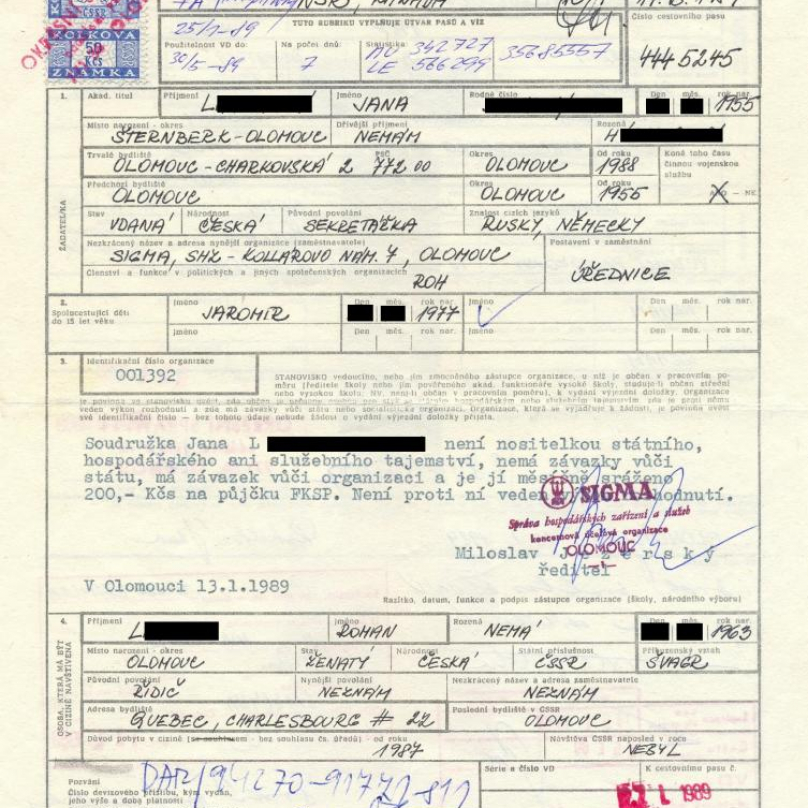 NSR, KANADA
25/1-89
TUTO RUBRIKU VYPLŇUJE ÚTVAR PASŮ A VÍZ
Číslo cestovního pasu
KOLKOVÁ
50
Kčs
ZNÁMKA
Použitelnost VD do:
30/5-89
Na počet dnů:
7
Statistika
342727
LE 566299
35685557
4445245
1.
Akad. titul
Příjmení
L
Jméno
JANA
Rodné číslo
Den
měs.
rok nar.
1955
Místo narození - okres
ŠTERNBERK-OLOMOUC
Dřívější příjmení
NEMÁM
Rozená
H
ŽADATEL/KA
Trvalé bydliště
OLOMOUC-CHARKOVSKÁ 2
PSČ
772 00
Okres
OLOMOUC
Od roku
1988
Koná toho času
činnou vojenskou
službu
Předchozí bydliště
OLOMOUC
Okres
OLOMOUC
Od roku
1955
X
— NE
Stav
VDANÁ
Národnost
ČESKÁ
Původní povolání
SEKRETÁŘKA
Znalost cizích jazyků
RUSKY, NĚMECKY
Nezkrácený název a adresa nynější organizace (zaměstnavatele)
SIGMA, SHZ - KOLLÁROVO NÁM. 7, OLOMOUC
Postavení v zaměstnání
ÚŘEDNICE
Členství a funkce v politických a jiných společenských organizacích
ROH
2.
Spolucestující děti
do 15 let věku
Jméno
JAROMÍR
Den
měs.
rok nar.
1977
Jméno
Den
měs.
rok nar.
Jméno
Den
měs.
rok nar.
Jméno
Den
měs.
rok nar.
3.
Identifikační číslo organizace
001392
STANOVISKO vedoucího, nebo jím zmocněného zástupce organizace, u níž je občan v pracovním po-
měru (ředitele školy nebo jím pověřeného akad. funkcionáře vysoké školy, studuje-li občan střední
nebo vysokou školu. NV, není-li občan v pracovním poměru), k vydání výjezdní doložky. Organizace
své identifikační číslo - bez tohoto údaje nebude žádost o vydání výjezdní doložky přijata.
Soudružka Jana L
není nositelkou státního,
hospodářského ani služebního tajemství, nemá závazky vůči
státu, má závazek vůči organizaci a je jí měsíčně sráženo
200,- Kčs na půjčku FKSP. Není proti ní veden
hodnutí.
SIGMA
Správa hospodářských zařízení a služeb
koncernová účelová organizace
OLOMOUC
-1-
Miloslav
ředitel
V Olomouci 13.1.1989
Razítko, datum, funkce a podpis zástupce organizace (školy, národního výboru)
4.
OSOBA, KTERÁ MÁ BÝT
V CIZINĚ NAVŠTÍVENA
Příjmení
L
Jméno
ROMAN
Rozená
NEMÁ
Den
měs.
rok nar.
1963
Místo narození - okres
OLOMOUC
Stav
ŽENATÝ
Národnost
ČESKÁ
Státní příslušnost
ČSSR
Příbuzenský vztah
ŠVAGR
Původní povolání
ŘIDIČ
Nynější povolání
NEZNÁM
Nezkrácený název a adresa zaměstnavatele
NEZNÁM
Adresa bydliště
QUEBEC, CHARLESBOURG # 22
Poslední bydliště v ČSSR
OLOMOUC
Důvod pobytu v cizině (se souhlasem - bez souhlasu čs. úřadů) - od roku
1987
Návštěva ČSSR naposled v roce
NEBYL
Pozvání
Číslo devizového příslibu, kým vydán,
jeho výše a doba platnosti
Série a číslo VD
K cestovnímu pasu č.
1989